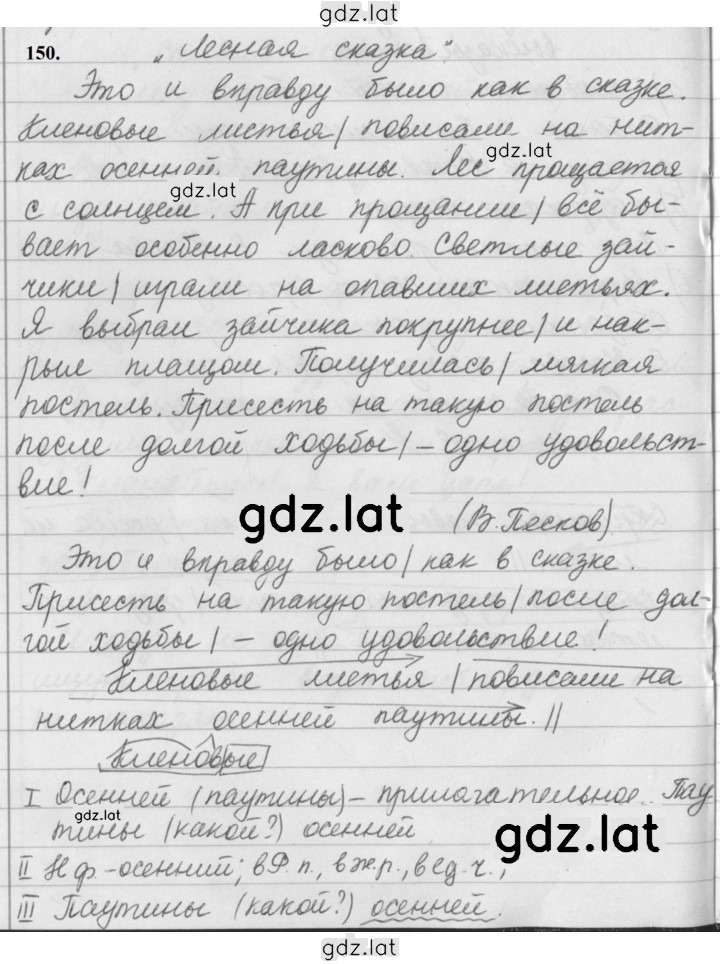 gdz.lat
150. „Лесная сказка".
Это и вправду было как в сказке.
Кленовые листья | повисали на нит-
ках осенней паутины. Лес прощается
gdz.lat
с солнцем. А при прощании | всё бы-
вает особенно ласково. Светлые зай-
чики | играли на опавших листьях.
Я выбрал зайчика покрупнее | и нак-
рыл плащом. Получилась | мягкая
постель. Присесть на такую постель
после долгой ходьбы | – одно удовольст-
вие!
gdz.lat (В. Песков)
Это и вправду было | как в сказке.
Присесть на такую постель | после дол-
гой ходьбы | – одно удовольствие!
Кленовые листья | повисали на
нитках осенней паутины. ||
Кленовые
I Осенней (паутины) – прилагательное. Пау
gdz.lat
тины (какой?) осенней
gdz.lat
II Н.ф. – осенний; в Р.п., в ж.р., в ед.ч.,
III Паутины (какой?) осенней.
gdz.lat